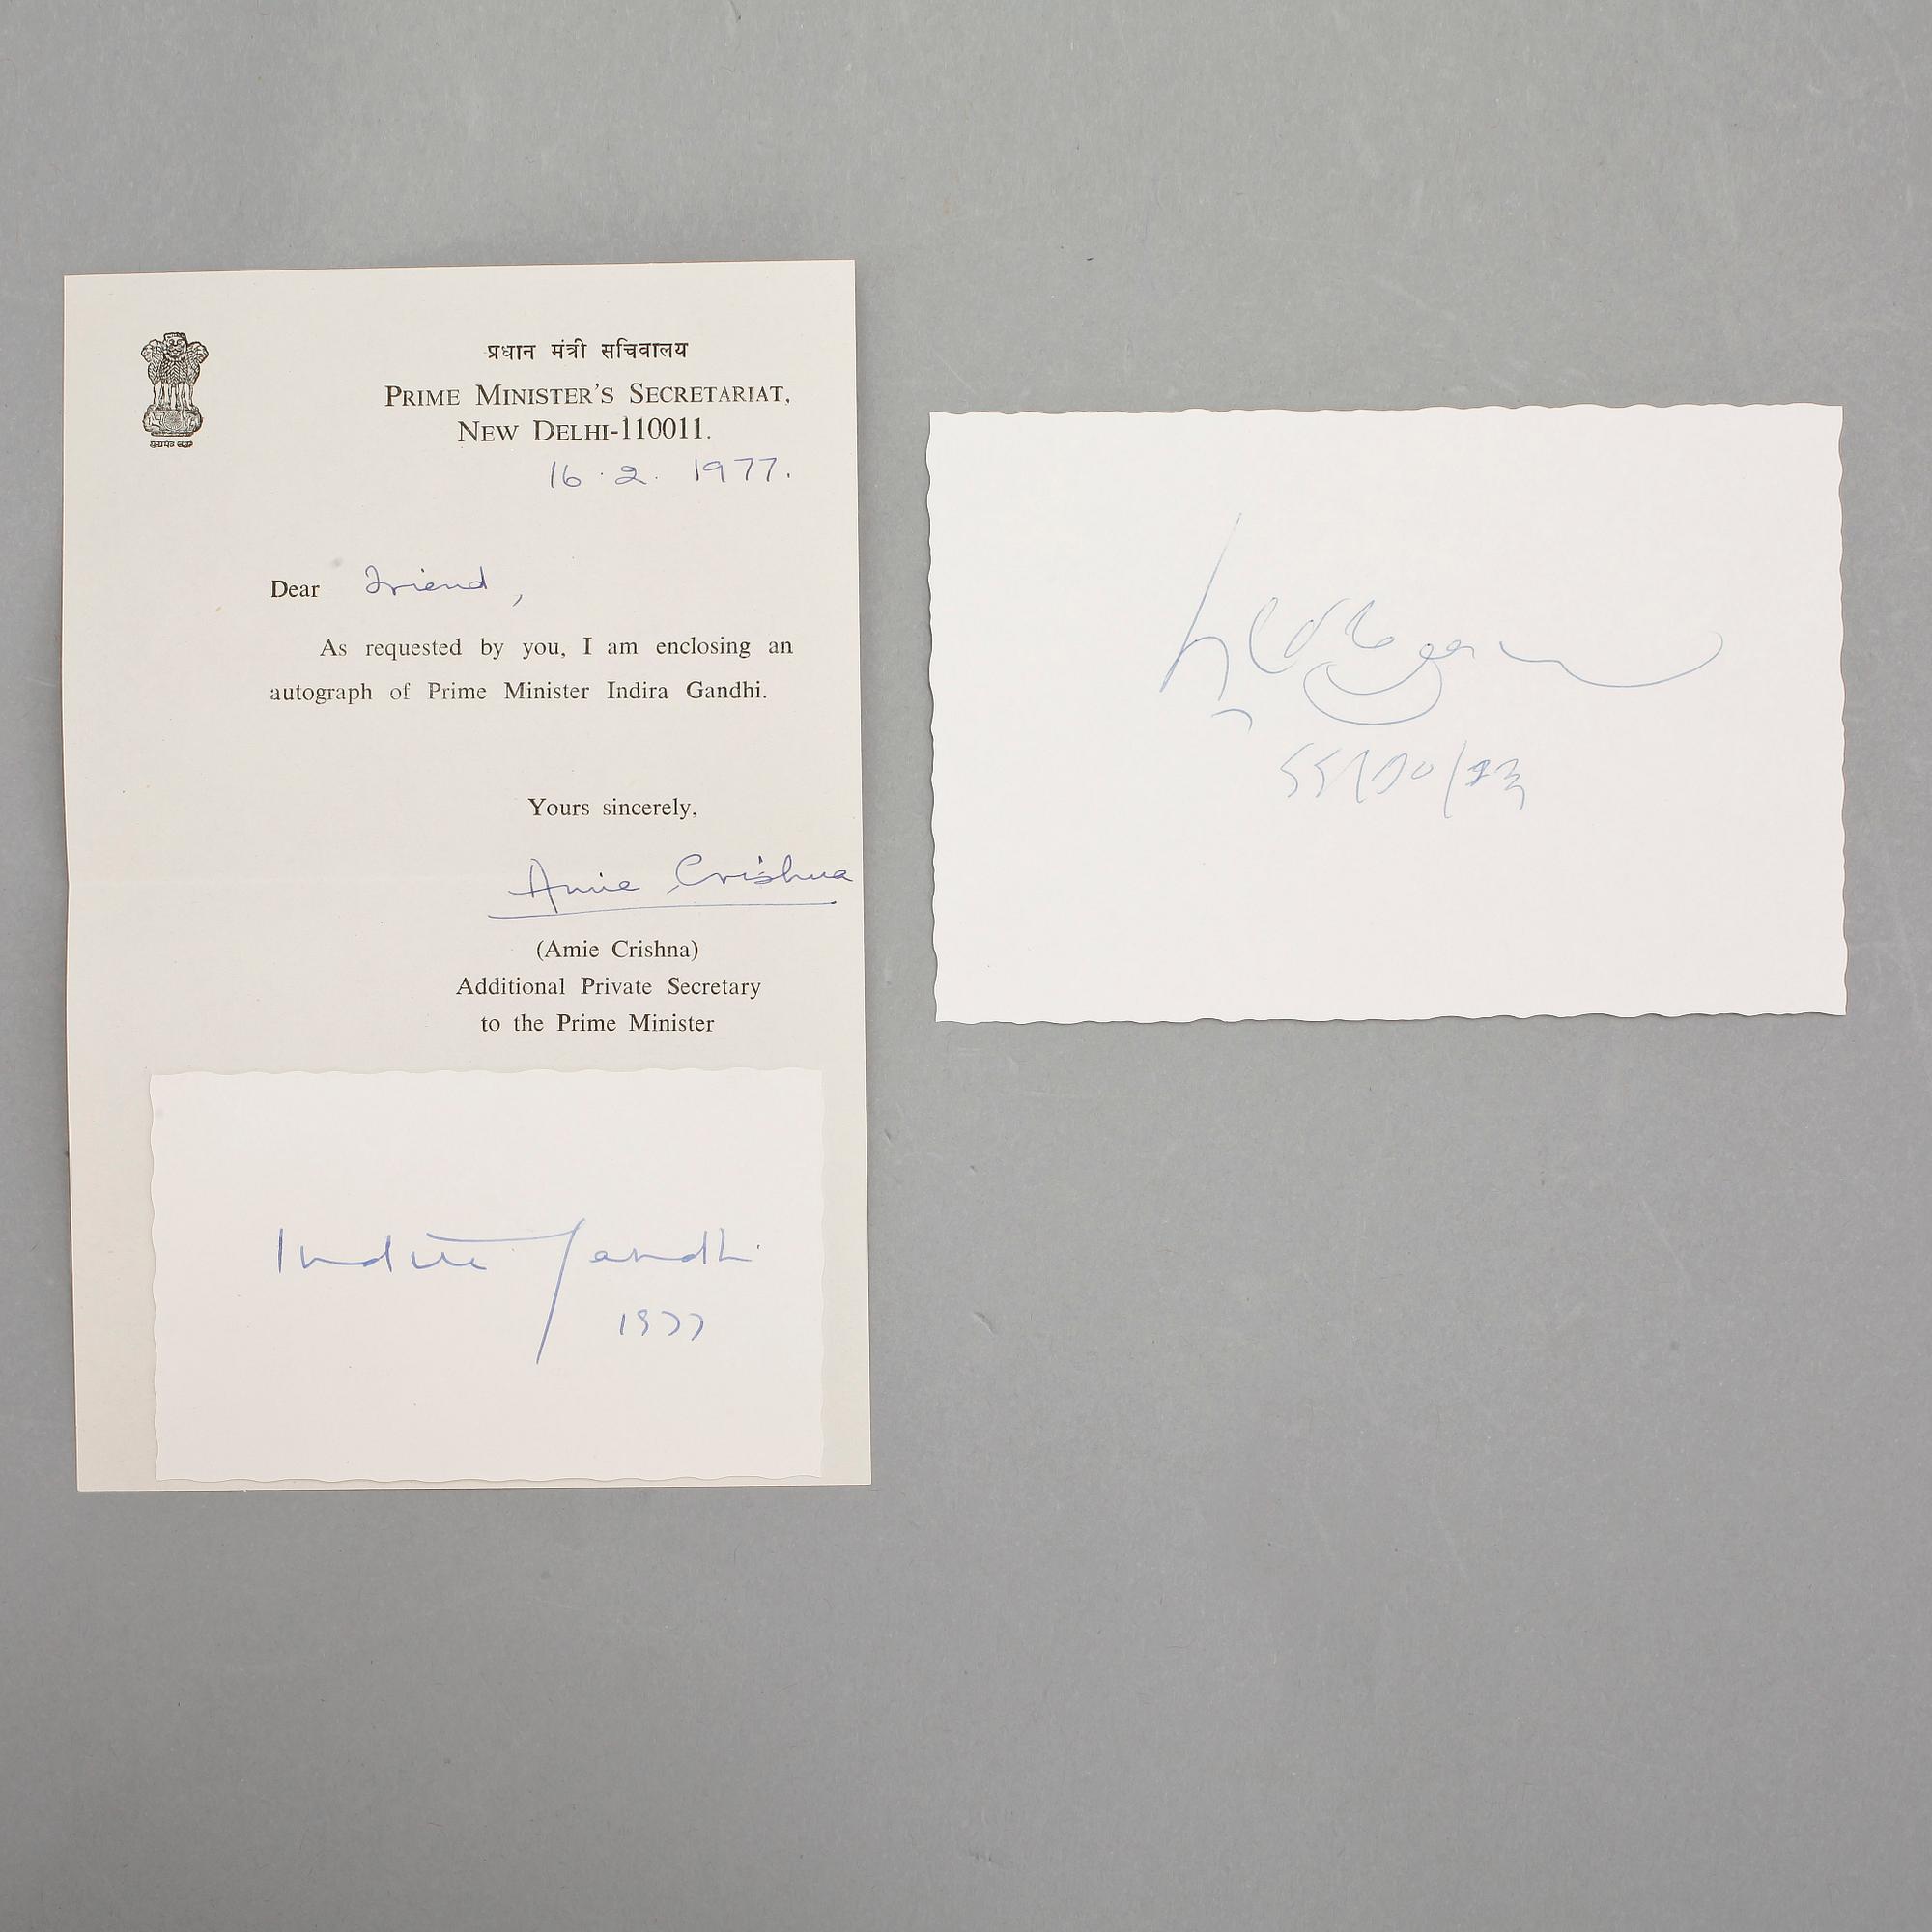 सत्यमेव जयते
प्रधान मंत्री सचिवालय
PRIME MINISTER'S SECRETARIAT,
NEW DELHI-110011.
16.2. 1977.
Dear Friend,
As requested by you, I am enclosing an
autograph of Prime Minister Indira Gandhi.
Yours sincerely,
Amie Crishna
(Amie Crishna)
Additional Private Secretary
to the Prime Minister
Indira Gandhi
1977